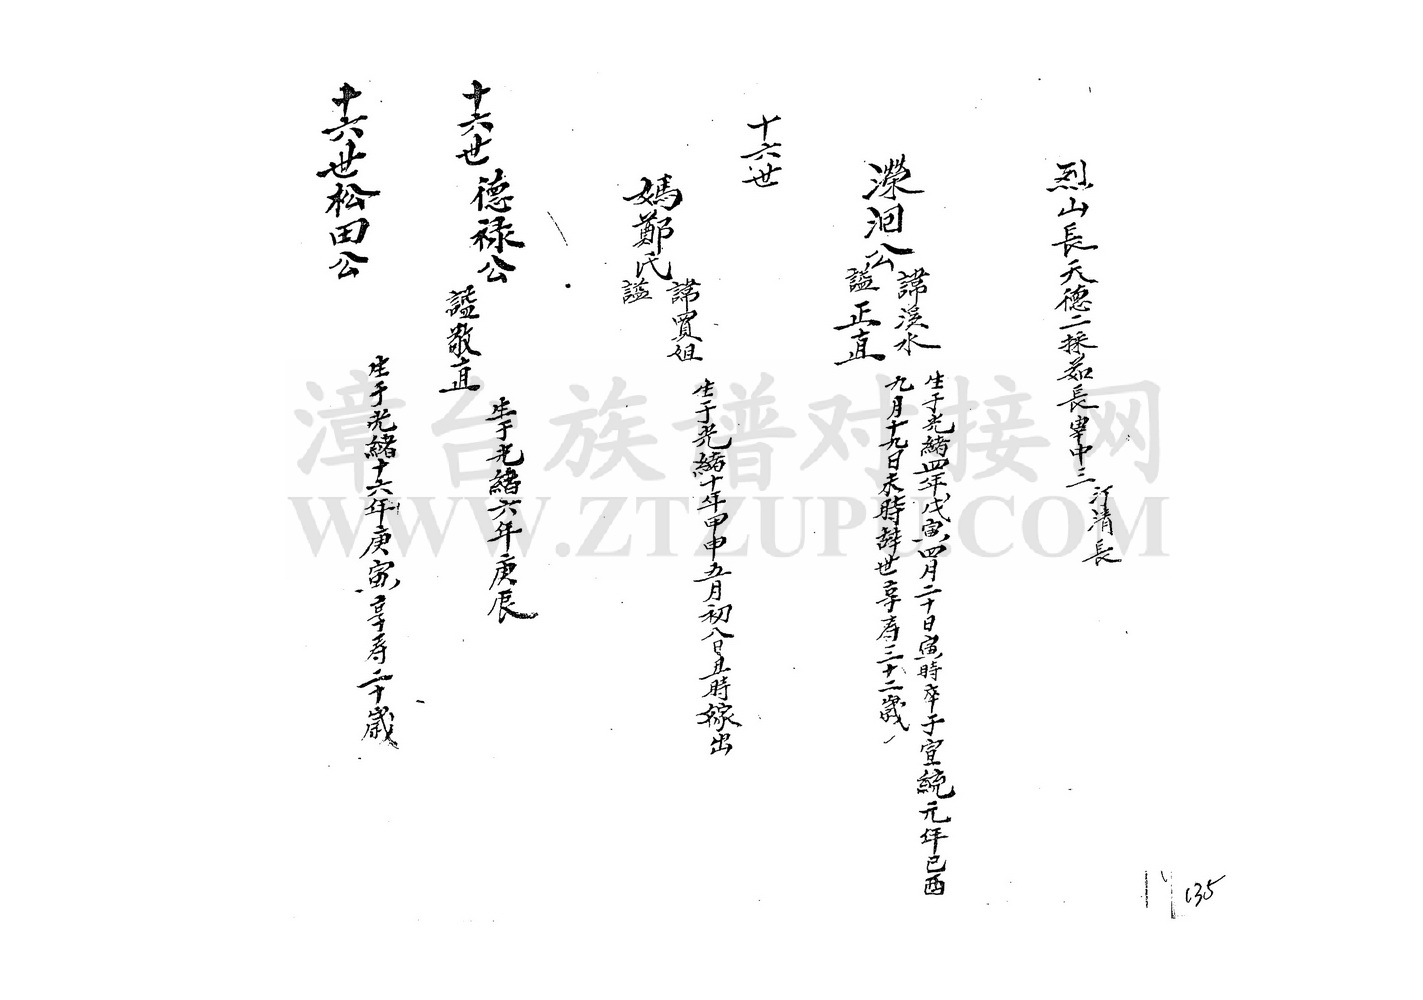 烈山長天德二採茹長宰中三汀清長
濚洄公
諱溪水
謚正直
生于光緒四年戊寅四月二十日寅時卒于宣統元年己酉
九月十九日未時辞世享寿三十二歲
十六世
媽鄭氏
諱買姐
謚
生于光緒十年甲申五月初八日丑時嫁出
十六世德禄公
謚敬直
生于光緒六年庚辰
十六世松田公
生于光緒十六年庚寅享寿二十歲
漳台族谱对接网
WWW.ZTZUPU.COM
135